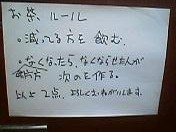 お茶、ルール
・減ってる方を飲む。
・なくなったら、なくならせた人が
次のを作る。
以上2点、よろしくおねがいします。